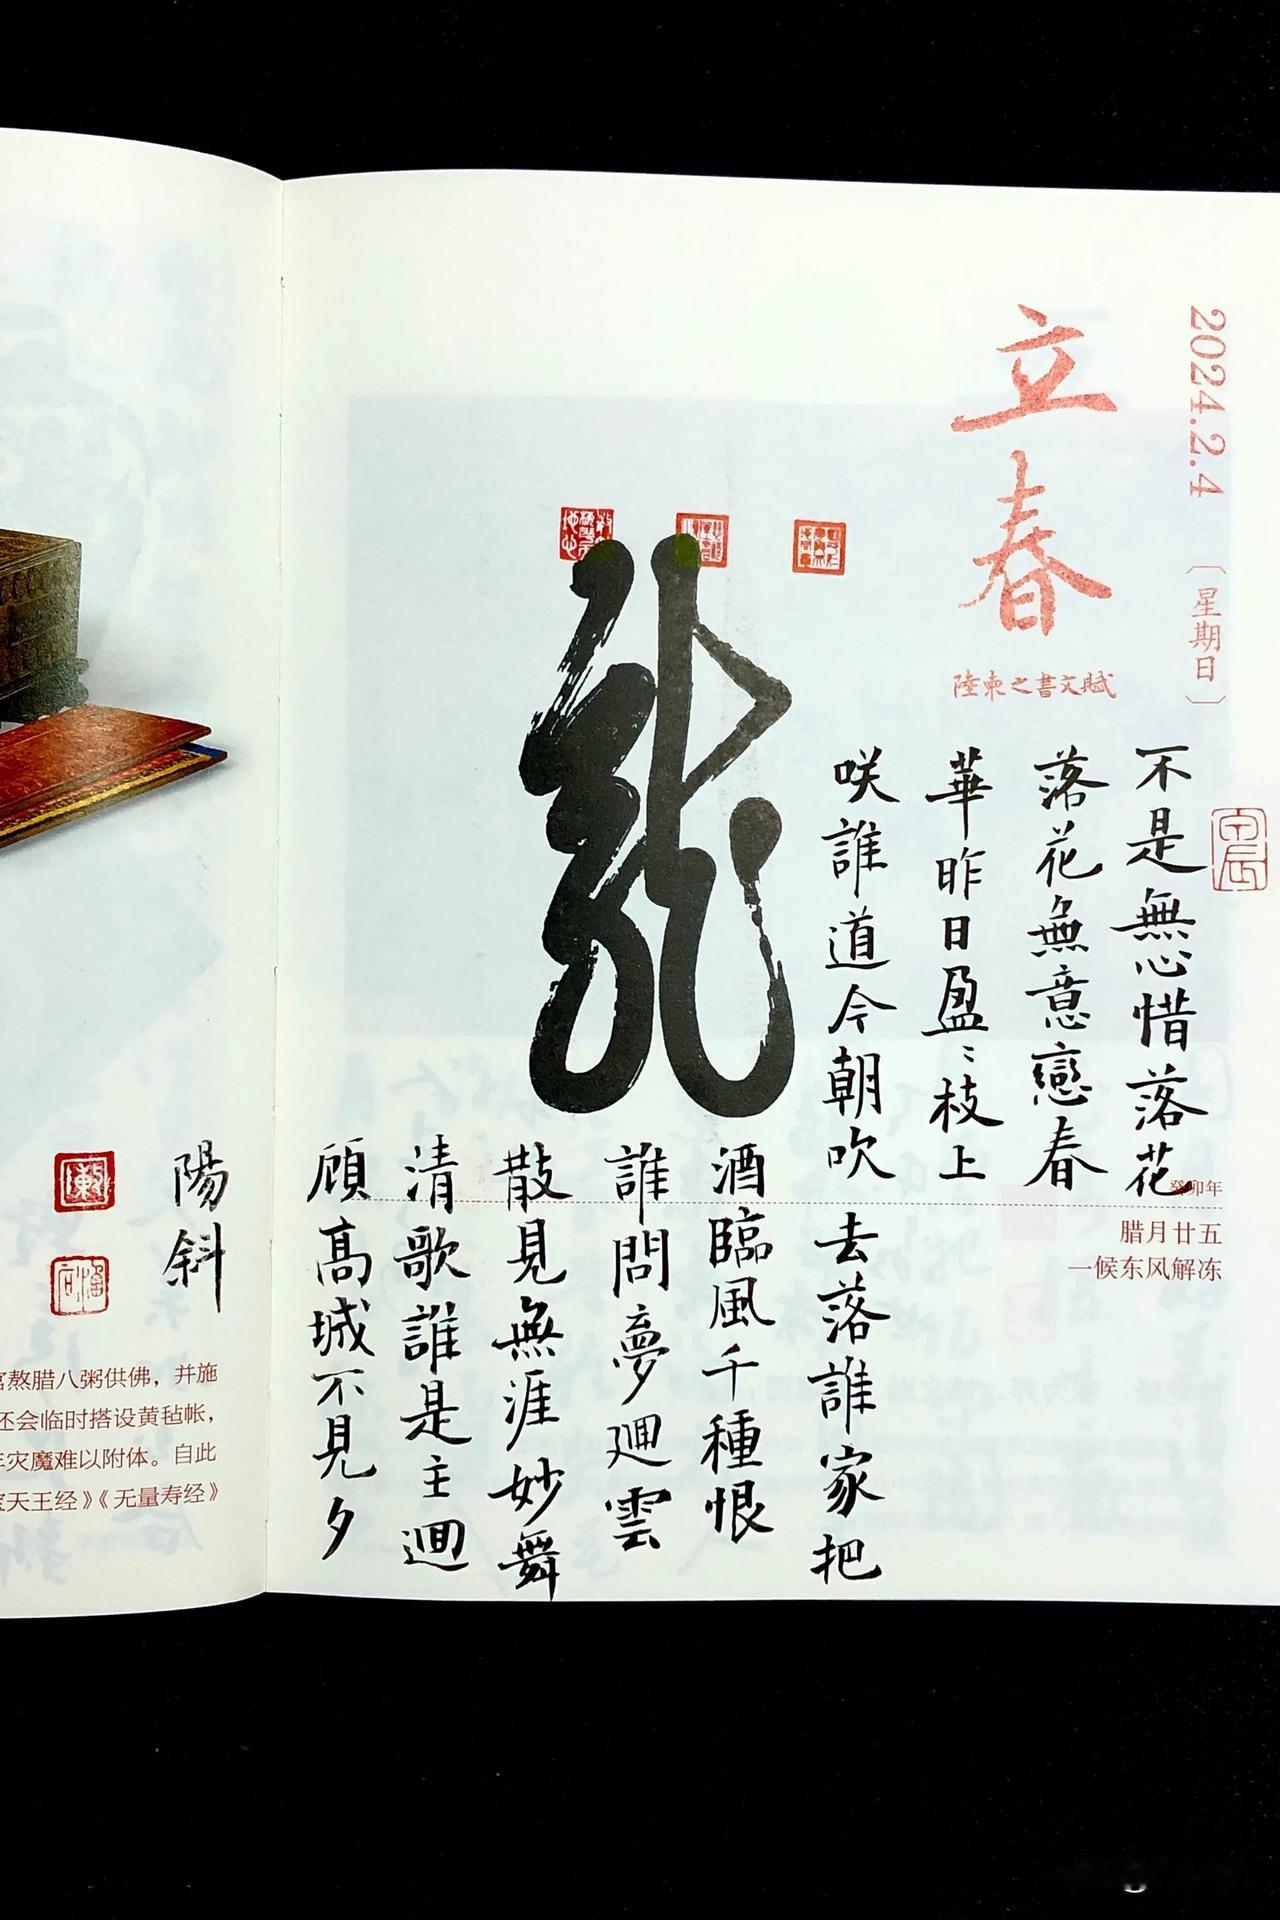 2024.2.4
〔星期日〕
立春
陸柬之書文賦
不是無心惜落花
落花無意戀春
華昨日盈〻枝上
咲誰道今朝吹
去落誰家把
酒臨風千種恨
誰問夢廻雲
散見無涯妙舞
清歌誰是主廻
顧高城不見夕
陽斜
龍
癸卯年
腊月廿五
一候东风解冻
熬腊八粥供佛，并施
还会临时搭设黄毡帐，
灾魔难以附体。自此
天王经》《无量寿经》